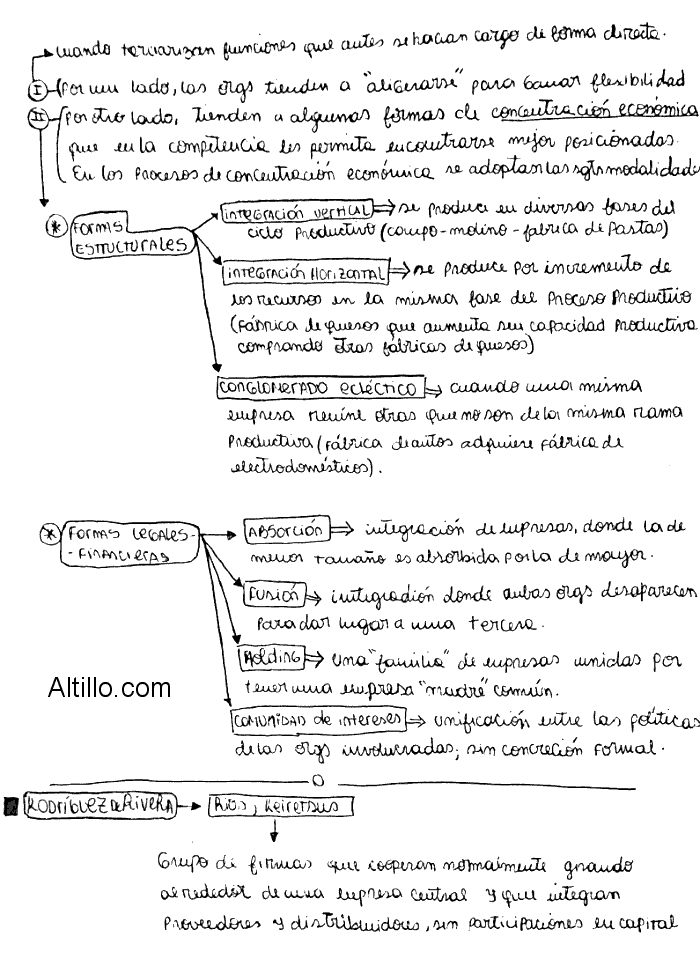 cuando terciarizan funciones que antes se hacian cargo de forma directa.
I Por un lado, las orgs tienden a "aligerarse" para ganar flexibilidad
II Por otro lado, tienden a algunas formas de concentración económica
que en la competencia les permita encontrarse mejor posicionadas.
En los procesos de concentración económica se adoptan las sgtes modalidades
* FORMAS ESTRUCTURALES
INTEGRACIÓN VERTICAL ⇒ se produce en diversas fases del
ciclo productivo (campo-molino-fabrica de pastas)
INTEGRACIÓN HORIZONTAL ⇒ se produce por incremento de
los recursos en la misma fase del proceso productivo
(fábrica de quesos que aumenta su capacidad productiva
comprando otras fábricas de quesos)
CONGLOMERADO ECLÉCTICO ⇒ cuando una misma
empresa reúne otras que no son de la misma rama
productiva (fábrica de autos adquiere fábrica de
electrodomésticos).
* FORMAS LEGALES-
-FINANCIERAS
ABSORCIÓN ⇒ integración de empresas, donde la de
menor tamaño es absorbida por la de mayor.
FUSIÓN ⇒ integradión donde ambas orgs desaparecen
para dar lugar a una tercera.
HOLDING ⇒ una "familia" de empresas unidas por
tener una empresa "madre" común.
COMUNIDAD de intereses ⇒ unificación entre las políticas
de las orgs involucradas, sin concreción formal.
Altillo.com
RODRÍGUEZ DE RIVERA → RIOS, KEIRETSUS
Grupo de firmas que cooperan normalmente girando
alrededor de una empresa central y que integran
proveedores y distribuidores, sin participaciones en capital